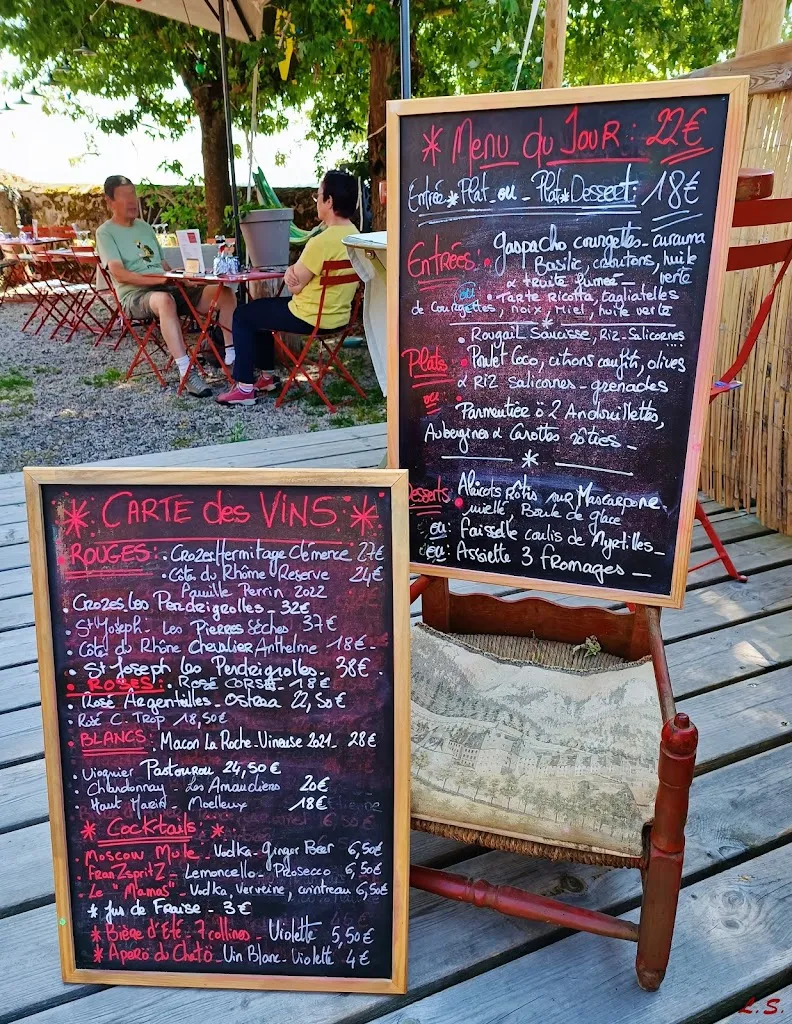 * Menu du Jour : 22€
Entrée * Plat ou Plat * Dessert : 18€
Entrées : Gaspacho courgettes - curcuma
Basilic, croutons, huile
& truite fumée - verte
ou • Tarte Ricotta, tagliatelles
de courgettes, noix, Miel, huile verte
*
• Rougail Saucisse, Riz - Salicornes
Plats • Poulet Coco, citrons confit, olives
& Riz Salicornes - grenades
ou
Parmentier ö 2 Andouillettes,
Aubergines & Carottes rôties -
*
Desserts • Abricots Rôtis sur Mascarpone
miellé Boule de glace
ou : Faisselle coulis de Myrtilles -
ou : Assiette 3 fromages -
* CARTE des VINS *
ROUGES : • Crozes Hermitage Clémence 27€
• Côte du Rhôme Reserve 24€
Famille Perrin 2022
• Crozes Les Perdrigolles - 32€
• St Joseph - Les Pierres Sèches 37€
• Côte du Rhône Chevalier Anthelme 18€ -
• St Joseph Les Perdrigolles - 38€ •
• ROSES : • Rosé CORSE - 18€
• Rosé Argentielles - Ostrea 22,50€
• Rosé C. Trop 18,50€
• BLANCS : • Macon La Roche-Vineuse 2021 - 28€
• Viognier Pastourou 24,50€
• Chardonnay - Les Amaudiers 20€
• Haut Marin - Moelleux 18€
* Cocktails *
• Moscow Mule - Vodka - Ginger Beer 6,50€
• FranZspritZ - Lemoncello - Prosecco 6,50€
• Le "Mamas" - Vodka, Verveine, cointreau 6,50€
* Jus de Fraise - 3€
* Bière d'Eté - 7 collines - Violette 5,50€
* Apéro du Chatö - Vin Blanc - Violette 4€
L.S.